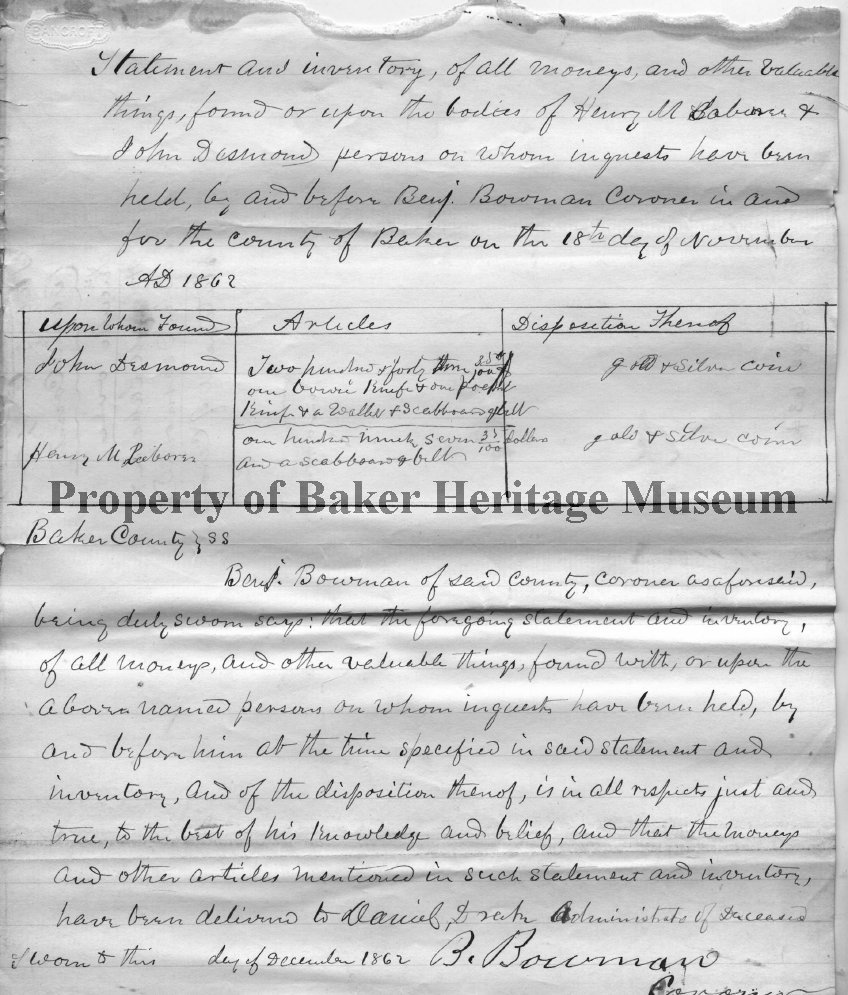 BANCROFT
Statement and inventory, of all moneys, and other valuable
things, found or upon the bodies of Henry M &
John Desmond persons on whom inquests have been
held, by and before Benj. Bowman Coroner in and
for the county of Baker on the 18th day of November
AD 1862
upon Whom Found Articles Disposition Thereof
John Desmond Two hundred & forty three 350/100 gold & silver coin
one bowie knife & one pocket
knife & a wallet & scabboard & belt
one hundred ninety seven 35/100 dollars gold & silver coin
Henry M
and a scabboard & belt
Property of Baker Heritage Museum
Baker County } SS
Benj. Bowman of said county, coroner as aforesaid,
being duly sworn says: that the foregoing statement and inventory,
of all moneys, and other valuable things, found with, or upon the
above named persons on whom inquests have been held, by
and before him at the time specified in said statement and
inventory, and of the disposition thereof, is in all respects just and
true, to the best of his knowledge and belief, and that the moneys
and other articles mentioned in such statement and inventory,
have been delivered to Daniel Drake of Deceased
Sworn to this day of December 1862 B. Bowman
Coroner